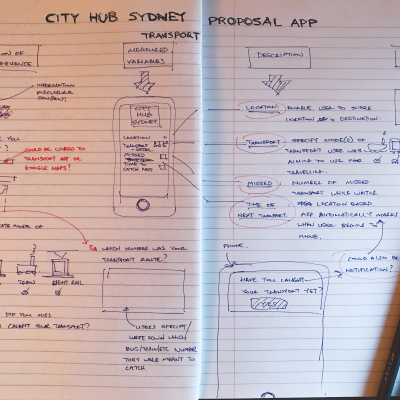 CITY HUB SYDNEY PROPOSAL APP
TRANSPORT
ON OF
SEQUENCE
INFORMATION
DISCLOSURE
CONSENT,
MEASURED
VARIABLES
DESCRIPTION
CITY
HUB
SYDNEY
LOCATION
TRANSPORT
MISSED
TIME TO
CATCH
YOU
COULD BE LINKED TO
TRANSPORT APP OR
GOOGLE MAPS?
LOCATION: ENABLE USER TO SHARE
LOCATION & DESTINATION.
TRANSPORT: SPECIFY MODE(S) OF
TRANSPORT USER WAS
TRAVELLING.
MISSED: NUMBER OF MISSED
TRANSPORT WHILE
TIME OF
NEXT TRANSPORT.
LOCATION BASED
APP AUTOMATICALLY WORKS
WHEN USER BEGIN
MOVE.
5A WHICH NUMBER WAS YOUR
TRANSPORT ROUTE?
TRAIN
LIGHT RAIL
DID YOU MISS
CAUGHT YOUR TRANSPORT?
USERS SPECIFY/
WRITE DOWN WHICH
BUS/TRAIN/ETC NUMBER
THEY WERE MEANT TO
CATCH
PHONE.
HAVE YOU CAUGHT
YOUR TRANSPORT YET?
YES
COULD ALSO BE
NOTIFICATION?